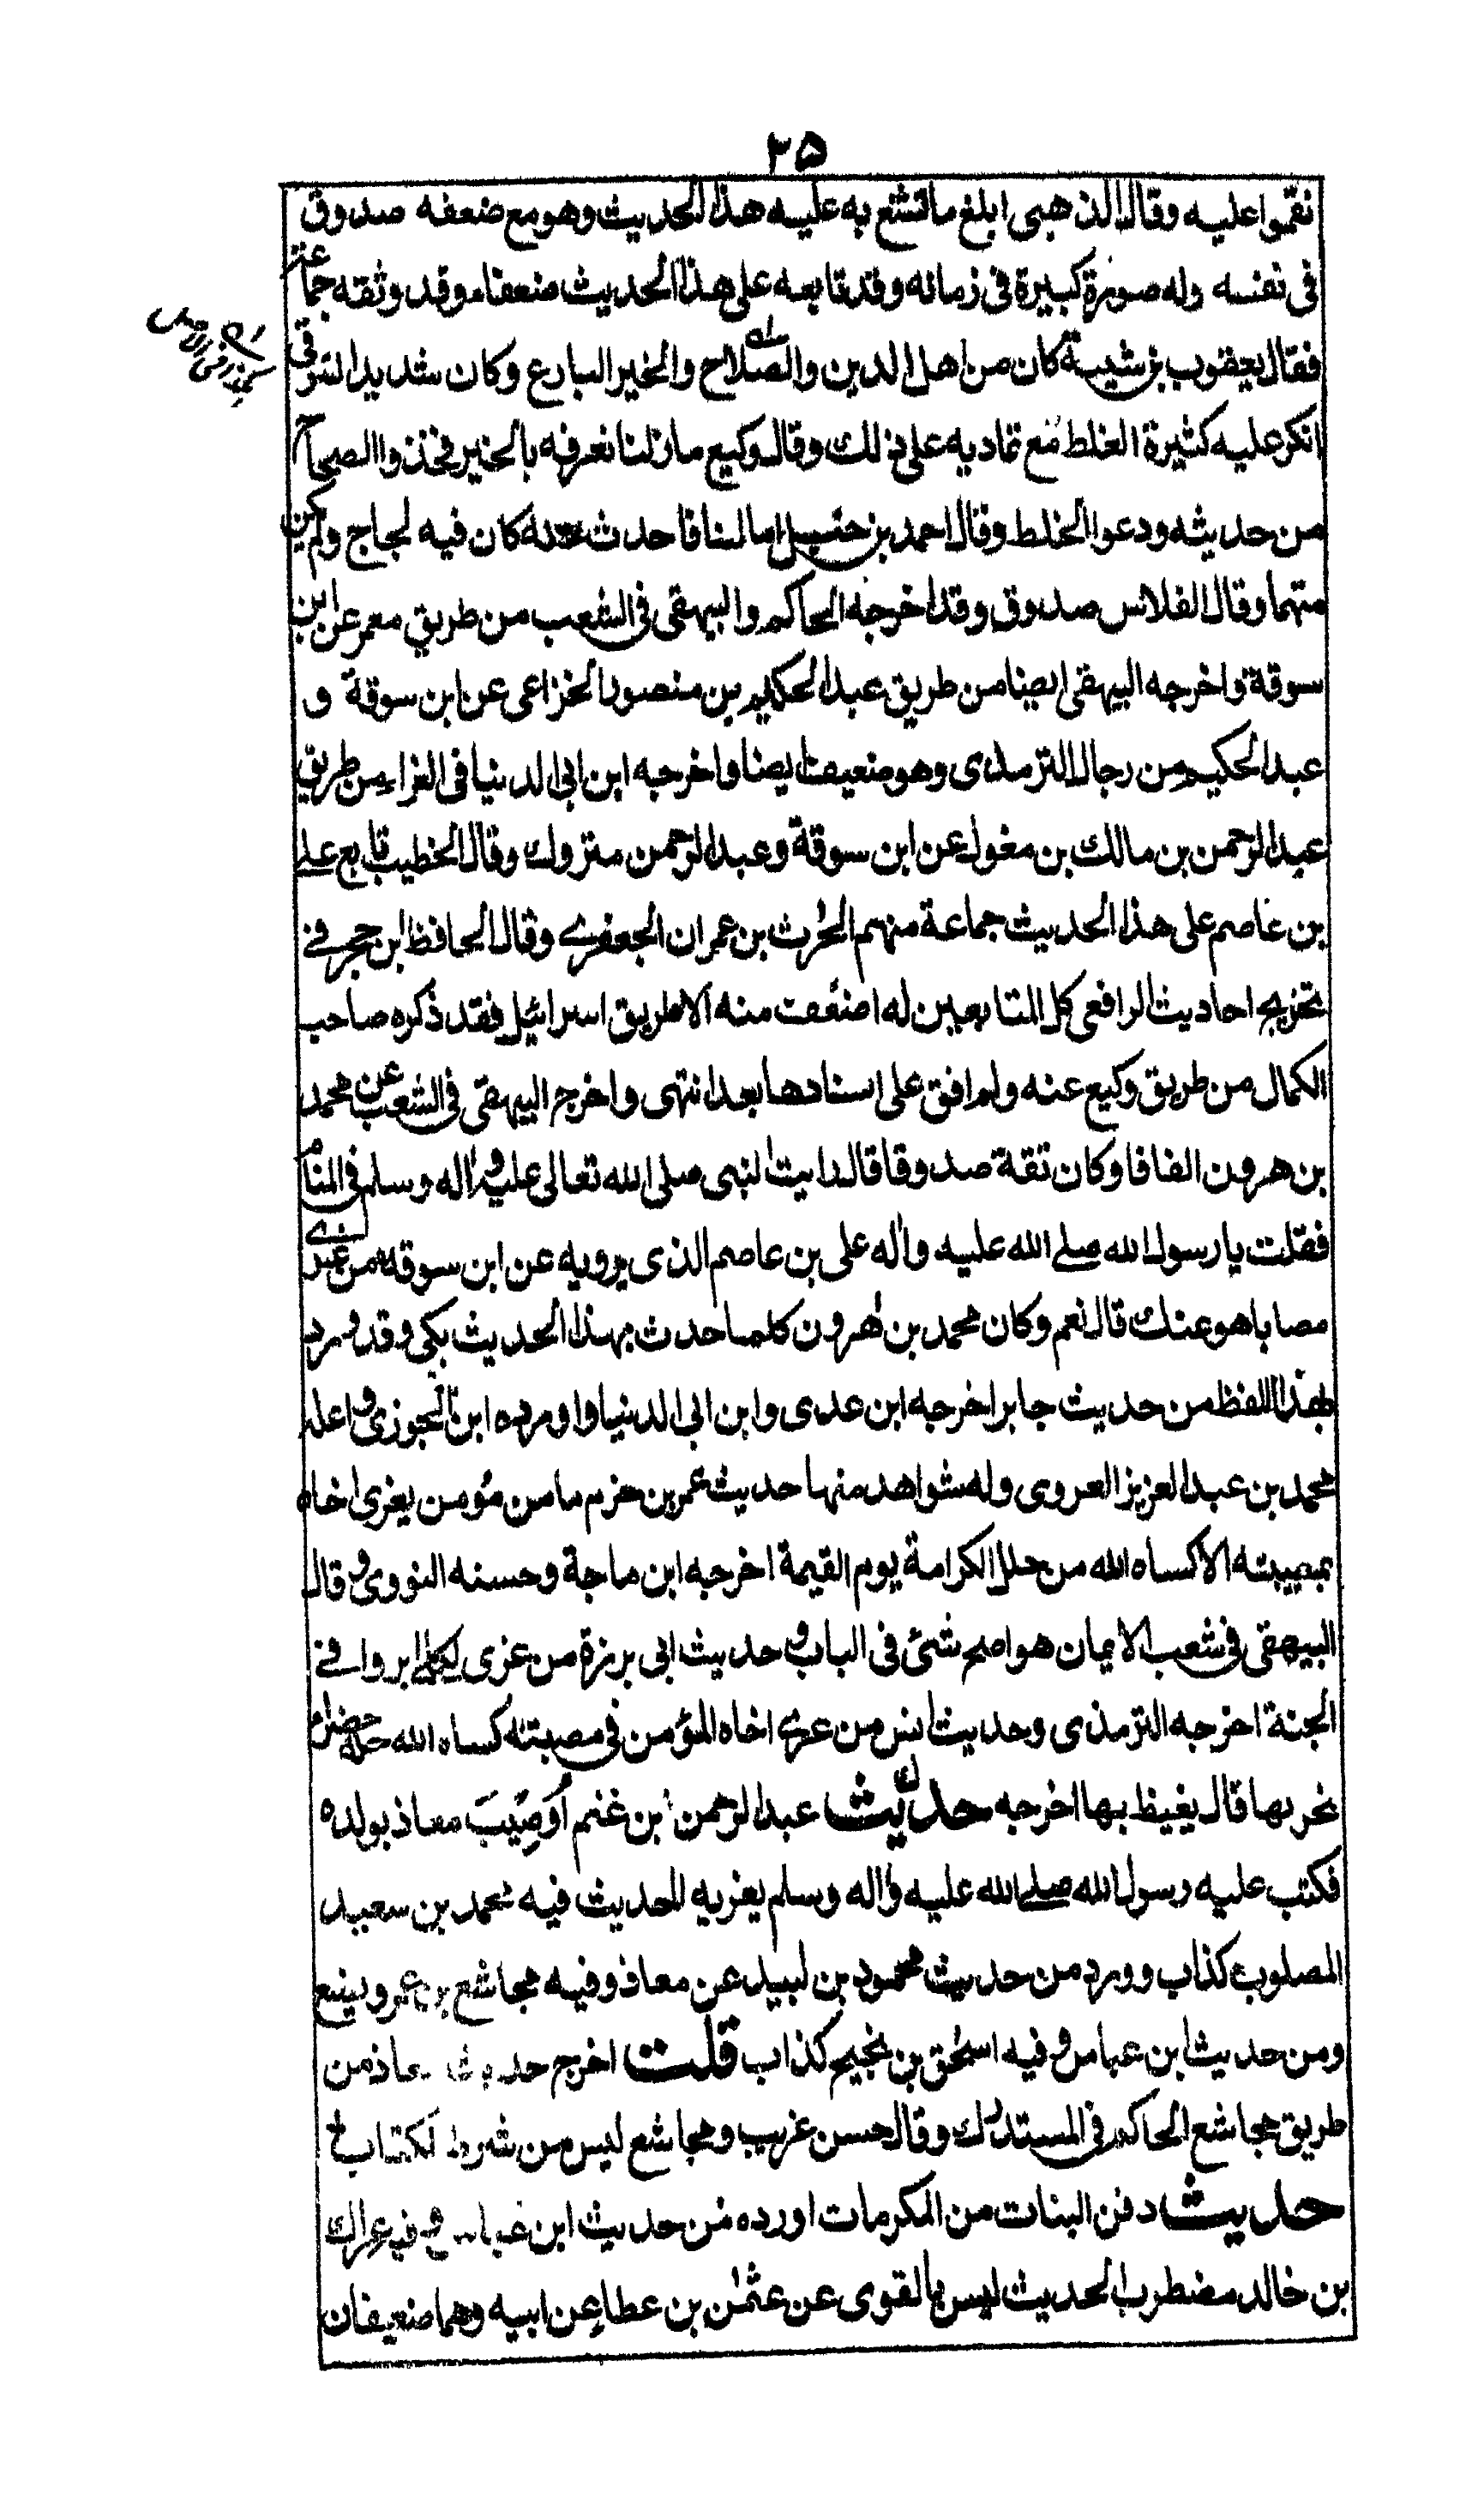 ٢٥
نقموا عليه وقال الذهبى ابلغ ما تشنع به عليه هذا الحديث وهو مع ضعفه صدوق
فى نفسه وله صورة كبيرة فى زمانه وقد تابعه على هذا الحديث ضعفاء وقد وثقه جماعة
فقال يعقوب بن شيبة كان من اهل الدين والصلاح والخير البارع وكان شديد التوقى
انكر عليه كثيرة الغلط مع تماديه على ذلك وقال وكيع مازلنا نعرفه بالخير فخذوا الصحاح
من حديثه ودعوا الخلط وقال احمد بن حنبل اما انا فاحدث عنه كان فيه لجاج ولم يكن
متهما وقال الفلاس صدوق وقد اخرجه الحاكم والبيهقى فى الشعب من طريق معمر عن ابن
سوقة واخرجه البيهقى ايضا من طريق عبد الحكيم بن منصور الخزاعى عن ابن سوقة و
عبد الحكيم من رجال الترمذى وهو ضعيف ايضا واخرجه ابن ابى الدنيا فى العزاء من طريق
عبد الرحمن بن مالك بن مغول عن ابن سوقة وعبد الرحمن متروك وقال الخطيب تابع على
بن عاصم على هذا الحديث جماعة منهم الحٰرث بن عمران الجعفرى وقال الحافظ ابن حجر فى
تخريج احاديث الرافعى كل المتابعين له اضعف منه الا طريق اسرائيل فقد ذكره صاحب
الكمال من طريق وكيع عنه ولم اقف على اسنادها بعد انتهى واخرج البيهقى فى الشعب عن محمد
بن هرون الفافا وكان ثقة صدوقا قال رايت النبى صلى الله تعالى عليه واله وسلم فى المنام
فقلت يا رسول الله صلى الله عليه واله على بن عاصم الذى يرويه عن ابن سوقة من عزى
مصابا هو عنك قال نعم وكان محمد بن هٰرون كلما حدث بهذا الحديث بكى وقد ورد
بهذا اللفظ من حديث جابر اخرجه ابن عدى وابن ابى الدنيا واورده ابن الجوزى و اعله
محمد بن عبد العزيز العروى وله شواهد منها حديث عمر بن حزم ما من مؤمن يعزى اخاه
بمصيبته الا كساه الله من حلل الكرامة يوم القيمة اخرجه ابن ماجة وحسنه النووى و قال
البيهقى فى شعب الايمان هو اصح شئ فى الباب و حديث ابى برزة من عزى ثكلى بردا فى
الجنة اخرجه الترمذى وحديث انس من عزى اخاه المؤمن فى مصيبته كساه الله حلة خضراء
نحر بها قال يغيظ بها اخرجه حديث عبد الرحمن بن غنم اُوصِيبَ معاذ بولده
فكتب عليه رسول الله صلى الله عليه واله وسلم يعزيه الحديث فيه محمد بن سعيد
المصلوب كذاب وورد من حديث محمود بن لبيد عن معاذ وفيه مجاشع بن عمرو يضع
ومن حديث ابن عباس و فيه اسحٰق بن نجيح كذاب قلت اخرج حديث معاذ من
طريق مجاشع الحاكم فى المستدرك وقال حسن غريب ومجاشع ليس من شرط الكتاب
حديث دفن البنات من المكرمات اورده من حديث ابن عباس و فيه عراك
بن خالد مضطرب الحديث ليس بالقوى عن عثمٰن بن عطاء عن ابيه وهما ضعيفان